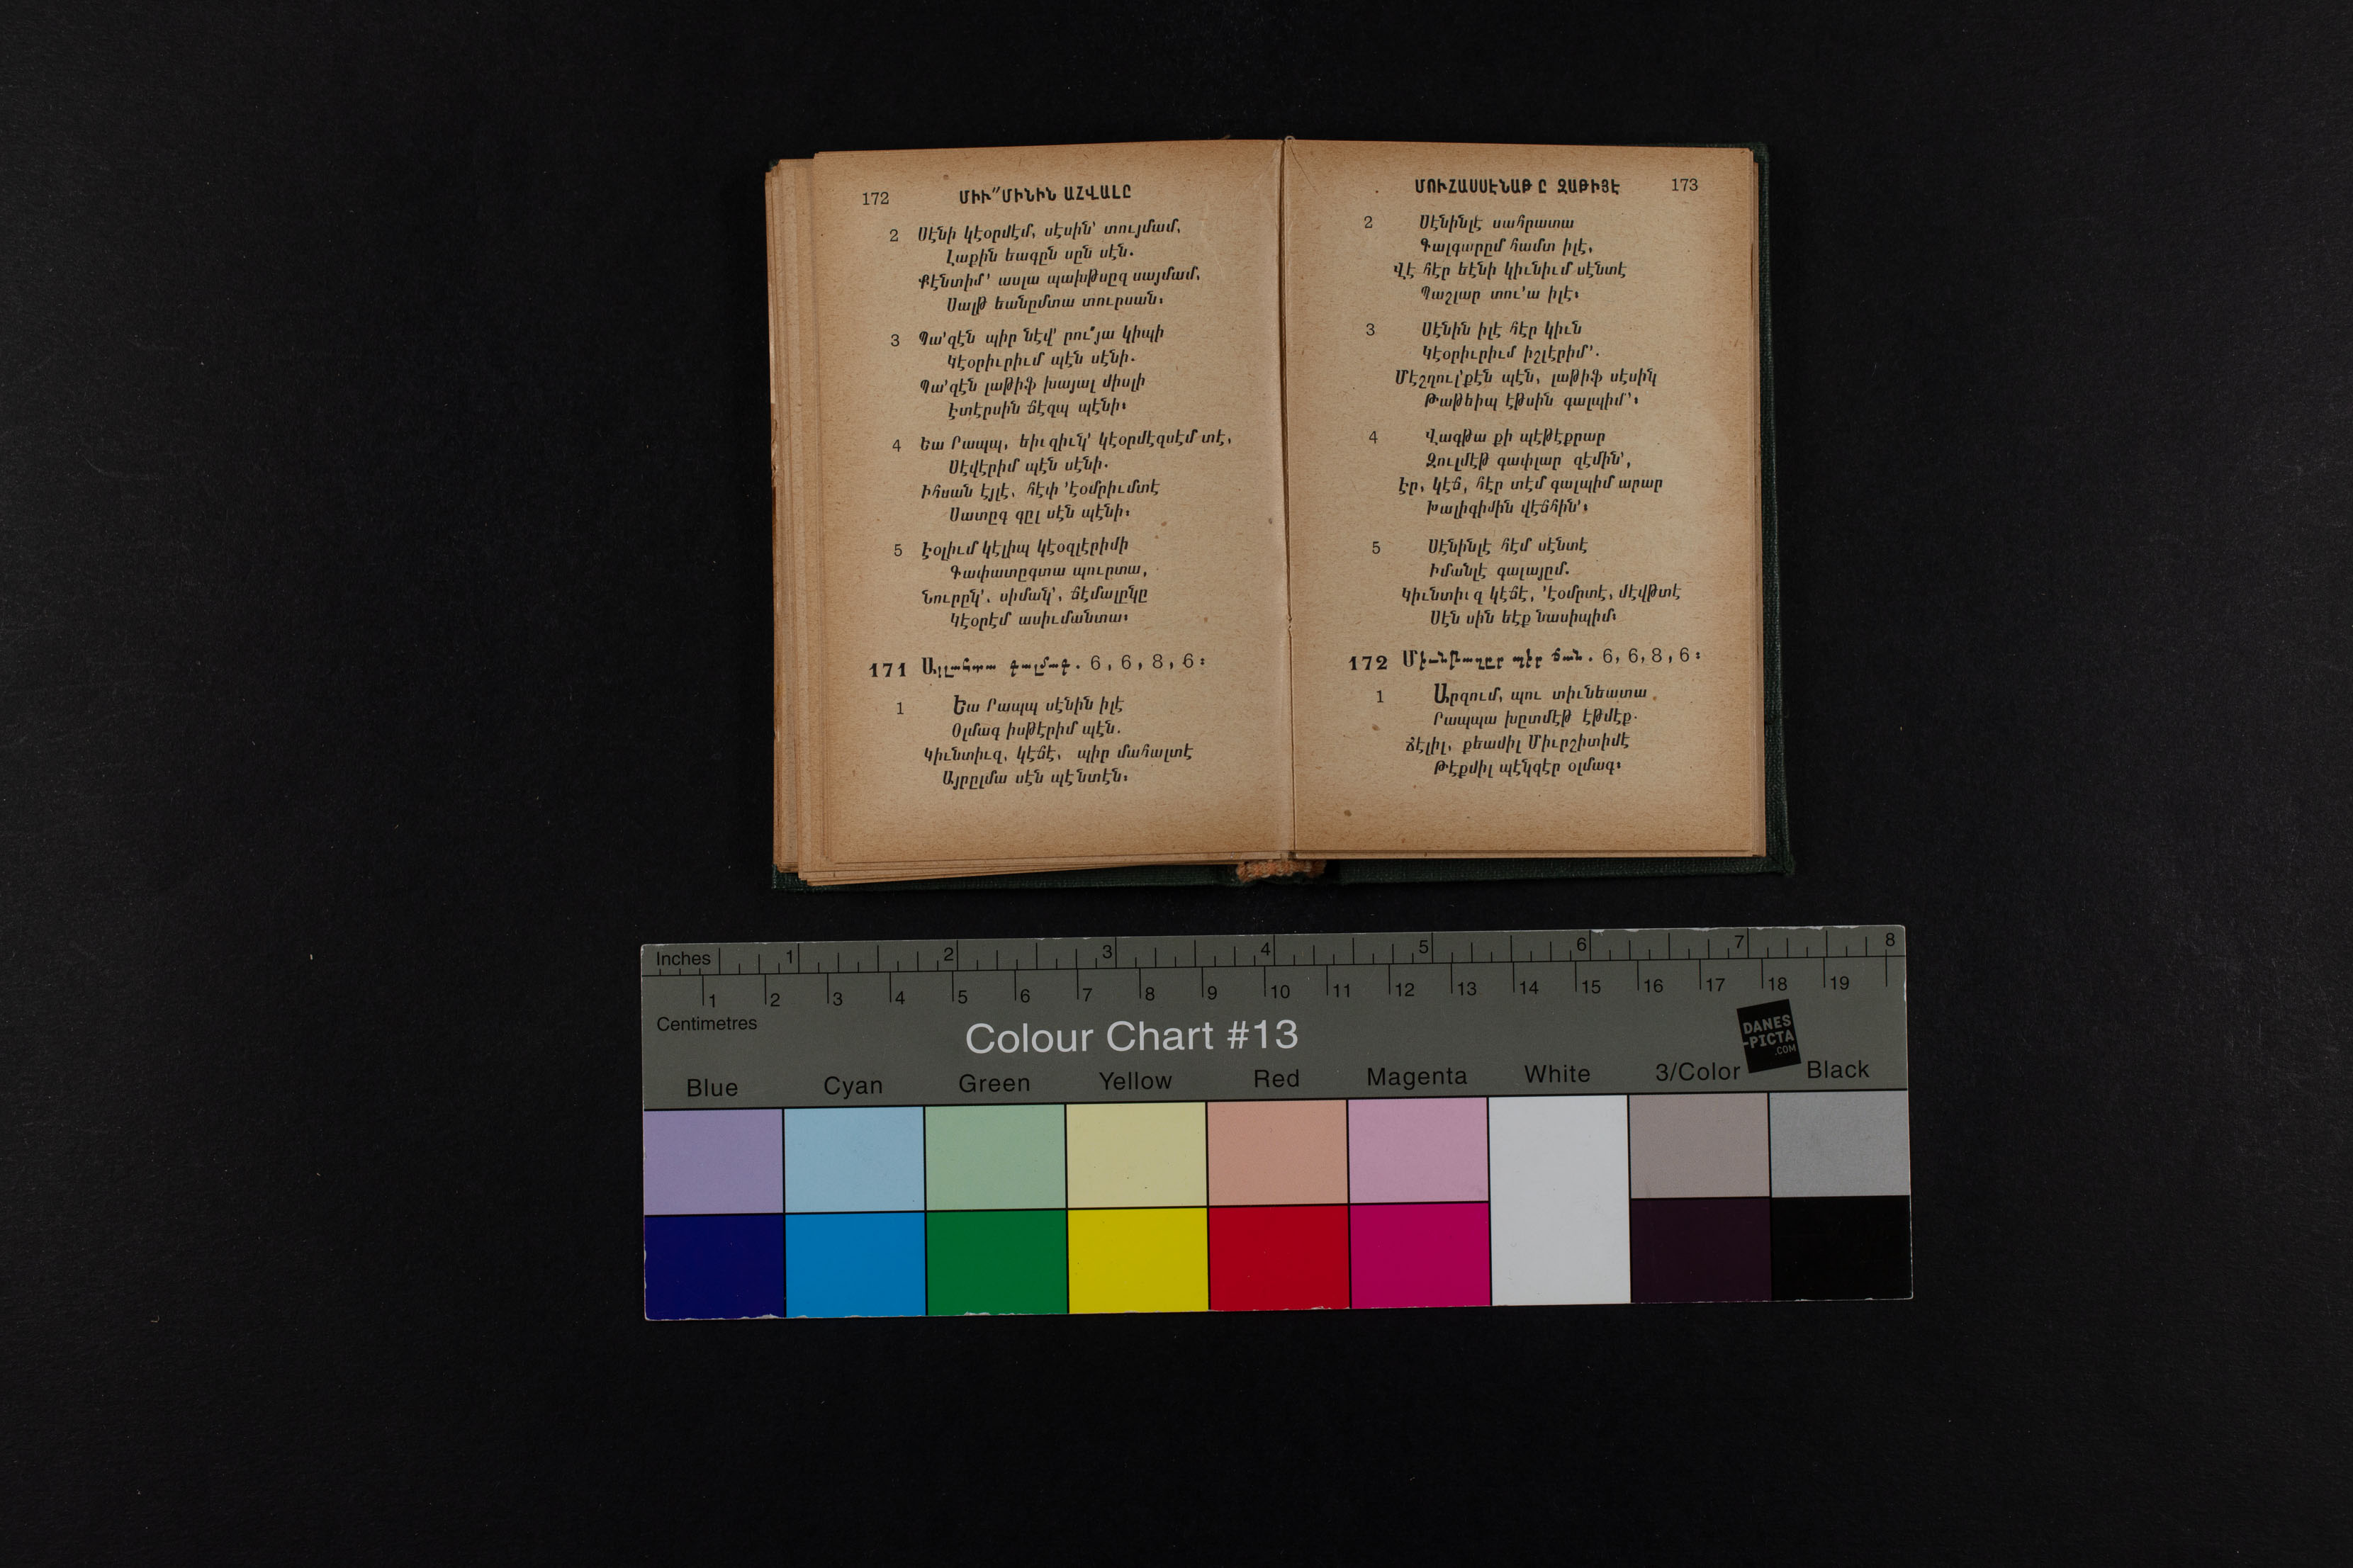 172 ՄԻՒ՞ՄԻՆԻՆ ԱՀՎԱԼԸ
2 Սէնի կէօրմէմ, սէսին՚ տույմամ,
Լաքին եագըն սըն սէն.
Քէնտիմ՚ ասլա պախթսըզ սայմամ,
Սալթ եանըմտա տուրսան։
3 Պա՚զէն պիր նէվ՚ րու՞յա կիպի
Կէօրիւրիւմ պէն սէնի.
Պա՚զէն լաթիֆ խայալ միսլի
Էտէրսին ճէզպ պէնի։
4 Եա Րապպ, եիւզիւկ՚ կէօրմէզսէմ տէ,
Սէվէրիմ պէն սէնի.
Իհսան էյլէ, հէփ ՚էօմրիւմտէ
Սատըգ գըլ սէն պէնի։
5 Էօլիւմ կէլիպ կէօզլէրիմի
Գափատըգտա պուրտա,
Նուրըկ՚, սիմակ՚, ճէմալընը
Կէօրէմ ասիւմանտա։
171 Ալլահտա գալմագ. 6, 6, 8, 6։
1 Եա Րապպ սէնին իլէ
Օլմագ իսթէրիմ պէն.
Կիւնտիւզ, կէճէ, պիր մահալտէ
Այրըլմա սէն պէնտէն։
ՄՈՒՀԱՍՍԷՆԱԹ Ը ԶԱԹԻՅԷ 173
2 Սէնինլէ սահրատա
Գալգարըմ համտ իլէ,
Վէ հէր եէնի կիւնիւմ սէնտէ
Պաշլար տու՚ա իլէ։
3 Սէնին իլէ հէր կիւն
Կէօրիւրիւմ իշլէրիմ՚.
Մէշղուլ՚քէն պէն, լաթիֆ սէսին
Թաթեիպ էթսին գալպիմ՚։
4 Վագթա քի պէթէքրար
Զուլմէթ գափլար զէմին՚,
Էր, կէճ, հէր տէմ գալպիմ արար
Խալիգիմին վէճհին՚։
5 Սէնինլէ հէմ սէնտէ
Իմանլէ գալայըմ.
Կիւնտիւզ կէճէ, ՚էօմրտէ, մէվթտէ
Սէն սին եէք նասիպիմ։
172 Միւնհաղըր պիր ճան. 6, 6, 8, 6։
1 Արզում, պու տիւնեատա
Րապպա խըտմէթ էթմէք.
Ճէլիլ, քեամիլ Միւրշիտիմէ
Թէքմիլ պէնզէր օլմագ։
Inches 1 2 3 4 5 6 7 8
1 2 3 4 5 6 7 8 9 10 11 12 13 14 15 16 17 18 19
Centimetres
Colour Chart #13
DANES
-PICTA
.COM
Blue Cyan Green Yellow Red Magenta White 3/Color Black